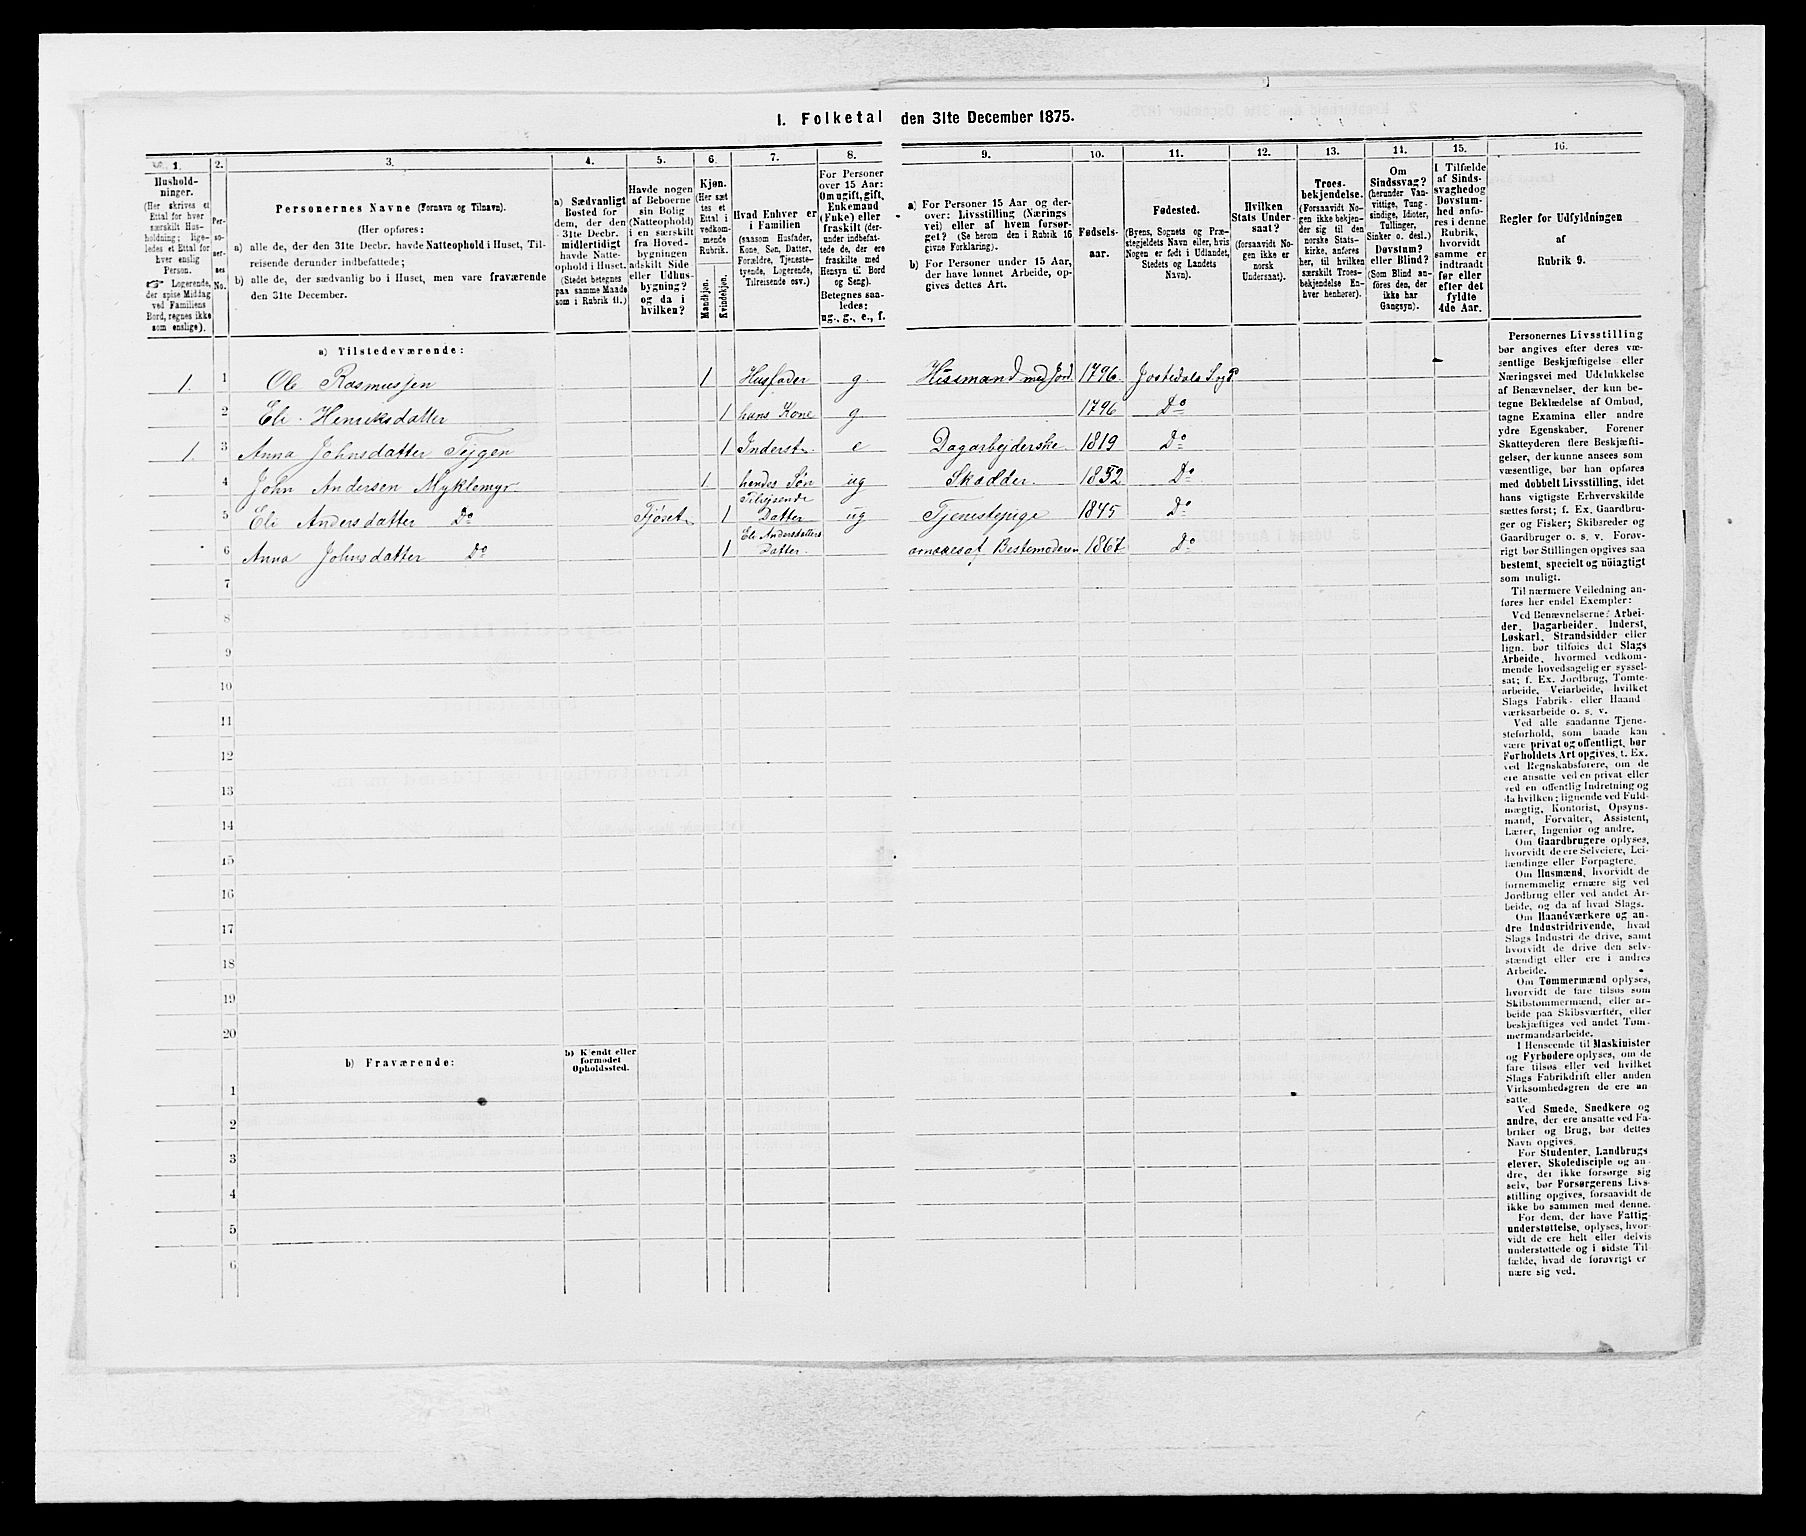 I. Folketal den 31te December 1875.
1. 2. 3. 4. 5. 6. 7. 8. 9. 10. 11. 12. 13. 14. 15. 16.
Hushold-
ninger.
(Her skrives et
Ettal for hver
særskilt Hus-
holdning; lige-
ledes et Ettal for
hver enslig
Person.
☞ Logerende,
der spise Middag
ved Familiens
Bord, regnes ikke
som enslige).
Per-
so-
ner-
nes
No.
Personernes Navne (Fornavn og Tilnavn).
(Her opføres:
a) alle de, der den 31te Decbr. havde Natteophold i Huset, Til-
reisende derunder indbefattede;
b) alle de, der sædvanlig bo i Huset, men vare fraværende
den 31te December.
a) Sædvanligt
Bosted for
dem, der den
31te Decbr.
midlertidigt
havde Natte-
ophold i Huset.
(Stedet betegnes
paa samme Maade
som i Rubrik 11.)
Havde nogen
af Beboerne
sin Bolig
(Natteophold)
i en særskilt
fra Hoved-
bygningen
adskilt Side
eller Udhus-
bygning?
og da i
hvilken?
Kjøn.
(Her sæt
tes et
Ettal i
vedkom-
mende
Rubrik.
Mandkjøn.
Kvindekjøn.
Hvad Enhver er
i Familien
(saasom Husfader,
Kone, Søn, Datter,
Forældre, Tjeneste-
tyende, Logerende,
Tilreisende osv.)
For Personer
over 15 Aar:
Om ugift, gift,
Enkemand
(Enke) eller
fraskilt (der-
under indbefat-
tede de, der ere
fraskilte med
Hensyn til Bord
og Seng).
Betegnes saa-
ledes:
ug., g., e., f.
a) For Personer 15 Aar og der-
over: Livsstilling (Nærings
vei) eller af hvem forsør-
get? (Se herom den i Rubrik 16
givne Forklaring).
b) For Personer under 15 Aar,
der have lønnet Arbeide, op-
gives dettes Art.
Fødsels-
aar.
Fødested.
(Byens, Sognets og Præ-
stegjeldets Navn eller, hvis
Nogen er født i Udlandet,
Stedets og Landets
Navn).
Hvilken
Stats Under-
saat?
(forsaavidt No-
gen ikke er
norsk
Undersaat).
Troes-
bekjendelse.
(Forsaavidt No-
gen ikke bekjen-
der sig til den
norske Stats-
kirke, anføres
her, til hvilken
særskilt Troes-
bekjendelse En-
hver henhører).
Om
Sindssvag?
(herunder Van-
vittige, Tung-
sindige, Idioter,
Tullinger,
Sinker o. desl.)
Døvstum?
eller Blind?
(Som Blind an-
føres den, der
ikke har
Gangsyn).
I Tilfælde
af Sinds-
svaghed og
Døvstum-
hed anfø-
res i denne
Rubrik,
hvorvidt
samme er
indtraadt
før eller
efter det
fyldte
4de Aar.
Regler for Udfyldningen
af
Rubrik 9.
a) Tilstedeværende:
1. 1 Ole Rasmussen 1 Husfader g. Husmand med Jord. 1796 Jostedals Sogn
2 Eli Henriksdatter 1 hans Kone g 1796 Do
1. 3 Anna Johnsdatter 1 Inderst e Dagarbejderske 1819 Do
4 John Andersen Myklemyr 1 hendes Søn ug 1852 Do
5 Eli Andersdatter Do 1 Tilrejsende
Datter ug Tjenestepige 1845 Do
6 Anna Johnsdatter Do 1 Eli Andersdatters
Datter. Bestemoderen 1867 Do
7
8
9
10
11
12
13
14
15
16
17
18
19
20
b) Fraværende:
b) Kjendt eller
formodet
Opholdssted.
1
2
3
4
5
6
Personernes Livsstilling
bør angives efter deres væ-
sentlige Beskjæftigelse eller
Næringsvei med Udelukkelse
af Benævnelser, der kun be-
tegne Beklædelse af Ombud,
tagne Examina eller andre
ydre Egenskaber. Forener
Skatteyderen flere Beskjæfti-
gelser, der kunne ansees som
væsentlige, bør han opføres
med dobbelt Livsstilling, idet
hans vigtigste Erhvervskilde
sættes først; f. Ex. Gaardbru-
ger og Fisker; Skibsreder og
Gaardbruger o. s. v. Forøv-
rigt bør Stillingen opgives saa
bestemt, specielt og nöiagtigt
som muligt.
Til nærmere Veiledning an-
føres her endel Exempler:
Ved Benævnelserne: Arbei-
der, Dagarbeider, Inderst,
Løskarl, Strandsidder eller
lign. bør tilføies det Slags
Arbeide, hvormed vedkom-
mende hovedsagelig er syssel-
sat; f. Ex. Jordbrug, Tomte-
arbeide, Veiarbeide, hvilket
Slags Fabrik- eller Haand-
værksarbeide o. s. v.
Ved alle saadanne Tjene-
steforhold, som baade kan
være privat og offentligt, bør
Forholdets Art opgives, t. Ex.
ved Regnskabsførere, om de
ere ansatte ved en privat eller
ved en offentlig Indretning og
da hvilken; lignende ved Fuld-
mægtig, Kontorist, Opsyns-
mand, Forvalter, Assistent,
Lærer, Ingeniør og andre.
Om Gaardbrugere oplyses,
hvorvidt de ere Selveiere, Lei-
lændinge eller Forpagtere.
Om Husmænd, hvorvidt de
fornemmelig ernære sig ved
Jordbrug eller ved andet Ar-
beide, og da af hvad Slags.
Om Haandværkere og an-
dre Industridrivende, hvad
Slags Industri de drive, samt
hvorvidt de drive den selv-
stændigt eller ere i andres
Arbeide.
Om Tømmermænd oplyses,
hvorvidt de fare tilsøs som
Skibstømmermænd, eller ar-
beide paa Skibsværfter, eller
beskjæftiges ved andet Tøm-
mermandsarbeide.
I Henseende til Maskinister
og Fyrbødere oplyses, om de
fare tilsøs eller ved hvilket
Slags Fabrikdrift eller anden
Virksomhedsgren de ere an-
satte.
Ved Smede, Snedkere og
andre, der ere ansatte ved Fa-
briker og Brug, bør dettes
Navn opgives.
For Studenter, Landbrugs
elever, Skoledisciple og an-
dre, der ikke forsørge sig
selv, bør Forsørgerens Livs-
stilling opgives, forsaavidt de
ikke bo sammen med denne.
For dem, der have Fattig-
understøttelse, oplyses, hvor-
vidt de ere helt eller delvis
understøttede og i sidste Til-
fælde, hvad de forøvrigt er
nære sig ved.